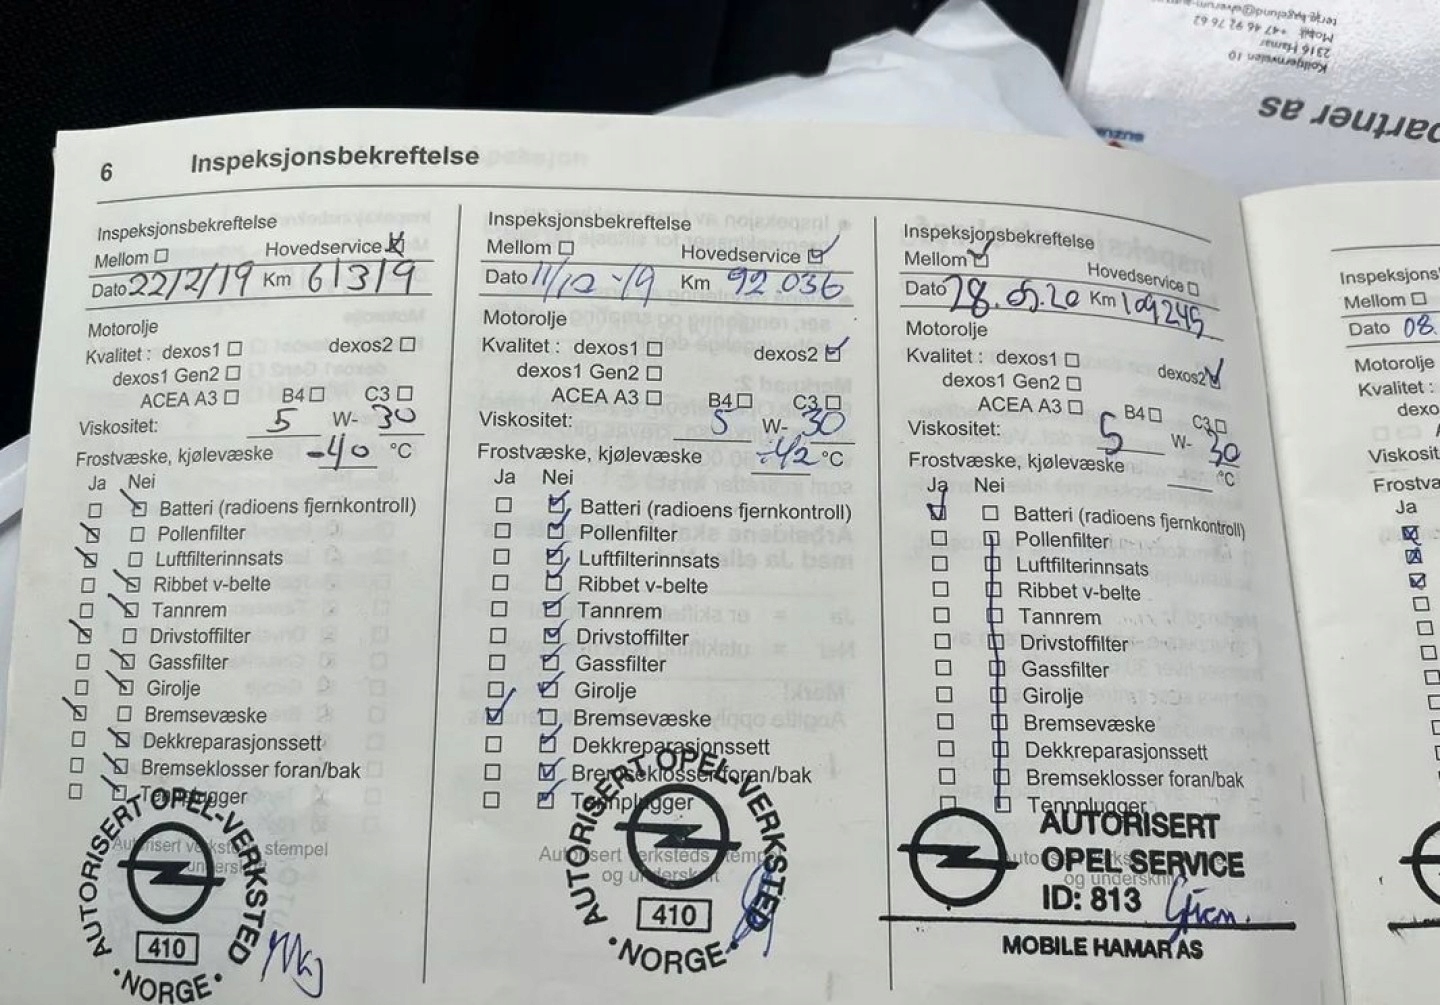 6 Inspeksjonsbekreftelse
Inspeksjonsbekreftelse
Mellom Hovedservice
Dato 22/2/19 Km 61319
Motorolje
Kvalitet : dexos1 dexos2
dexos1 Gen2
ACEA A3 B4 C3
Viskositet: 5 W- 30
Frostvæske, kjølevæske -40 °C
Ja Nei
Batteri (radioens fjernkontroll)
Pollenfilter
Luftfilterinnsats
Ribbet v-belte
Tannrem
Drivstoffilter
Gassfilter
Girolje
Bremsevæske
Dekkreparasjonssett
Bremseklosser foran/bak
Tennplugger
Autorisert verksteds stempel
AUTORISERT OPEL-VERKSTED
410
NORGE
Inspeksjonsbekreftelse
Mellom Hovedservice
Dato 11/12 -19 Km 92.036
Motorolje
Kvalitet : dexos1 dexos2
dexos1 Gen2
ACEA A3 B4 C3
Viskositet: 5 W- 30
Frostvæske, kjølevæske -42 °C
Ja Nei
Batteri (radioens fjernkontroll)
Pollenfilter
Luftfilterinnsats
Ribbet v-belte
Tannrem
Drivstoffilter
Gassfilter
Girolje
Bremsevæske
Dekkreparasjonssett
Bremseklosser foran/bak
Tennplugger
Autorisert verksteds stempel
og underskrift
AUTORISERT OPEL-VERKSTED
410
NORGE
Inspeksjonsbekreftelse
Mellom Hovedservice
Dato 28.05.20 Km 109245
Motorolje
Kvalitet : dexos1 dexos2
dexos1 Gen2
ACEA A3 B4 C3
Viskositet: 5 W- 30
Frostvæske, kjølevæske °C
Ja Nei
Batteri (radioens fjernkontroll)
Pollenfilter
Luftfilterinnsats
Ribbet v-belte
Tannrem
Drivstoffilter
Gassfilter
Girolje
Bremsevæske
Dekkreparasjonssett
Bremseklosser foran/bak
Tennplugger
og underskrift
AUTORISERT
OPEL SERVICE
ID: 813
MOBILE HAMAR AS
Inspeksjons
Mellom
Dato 08.
Motorolje
Kvalitet :
dexo
Viskosit
Frostva
Ja
partner as
2316 Hamar
Mobil +47 46 92 76 62